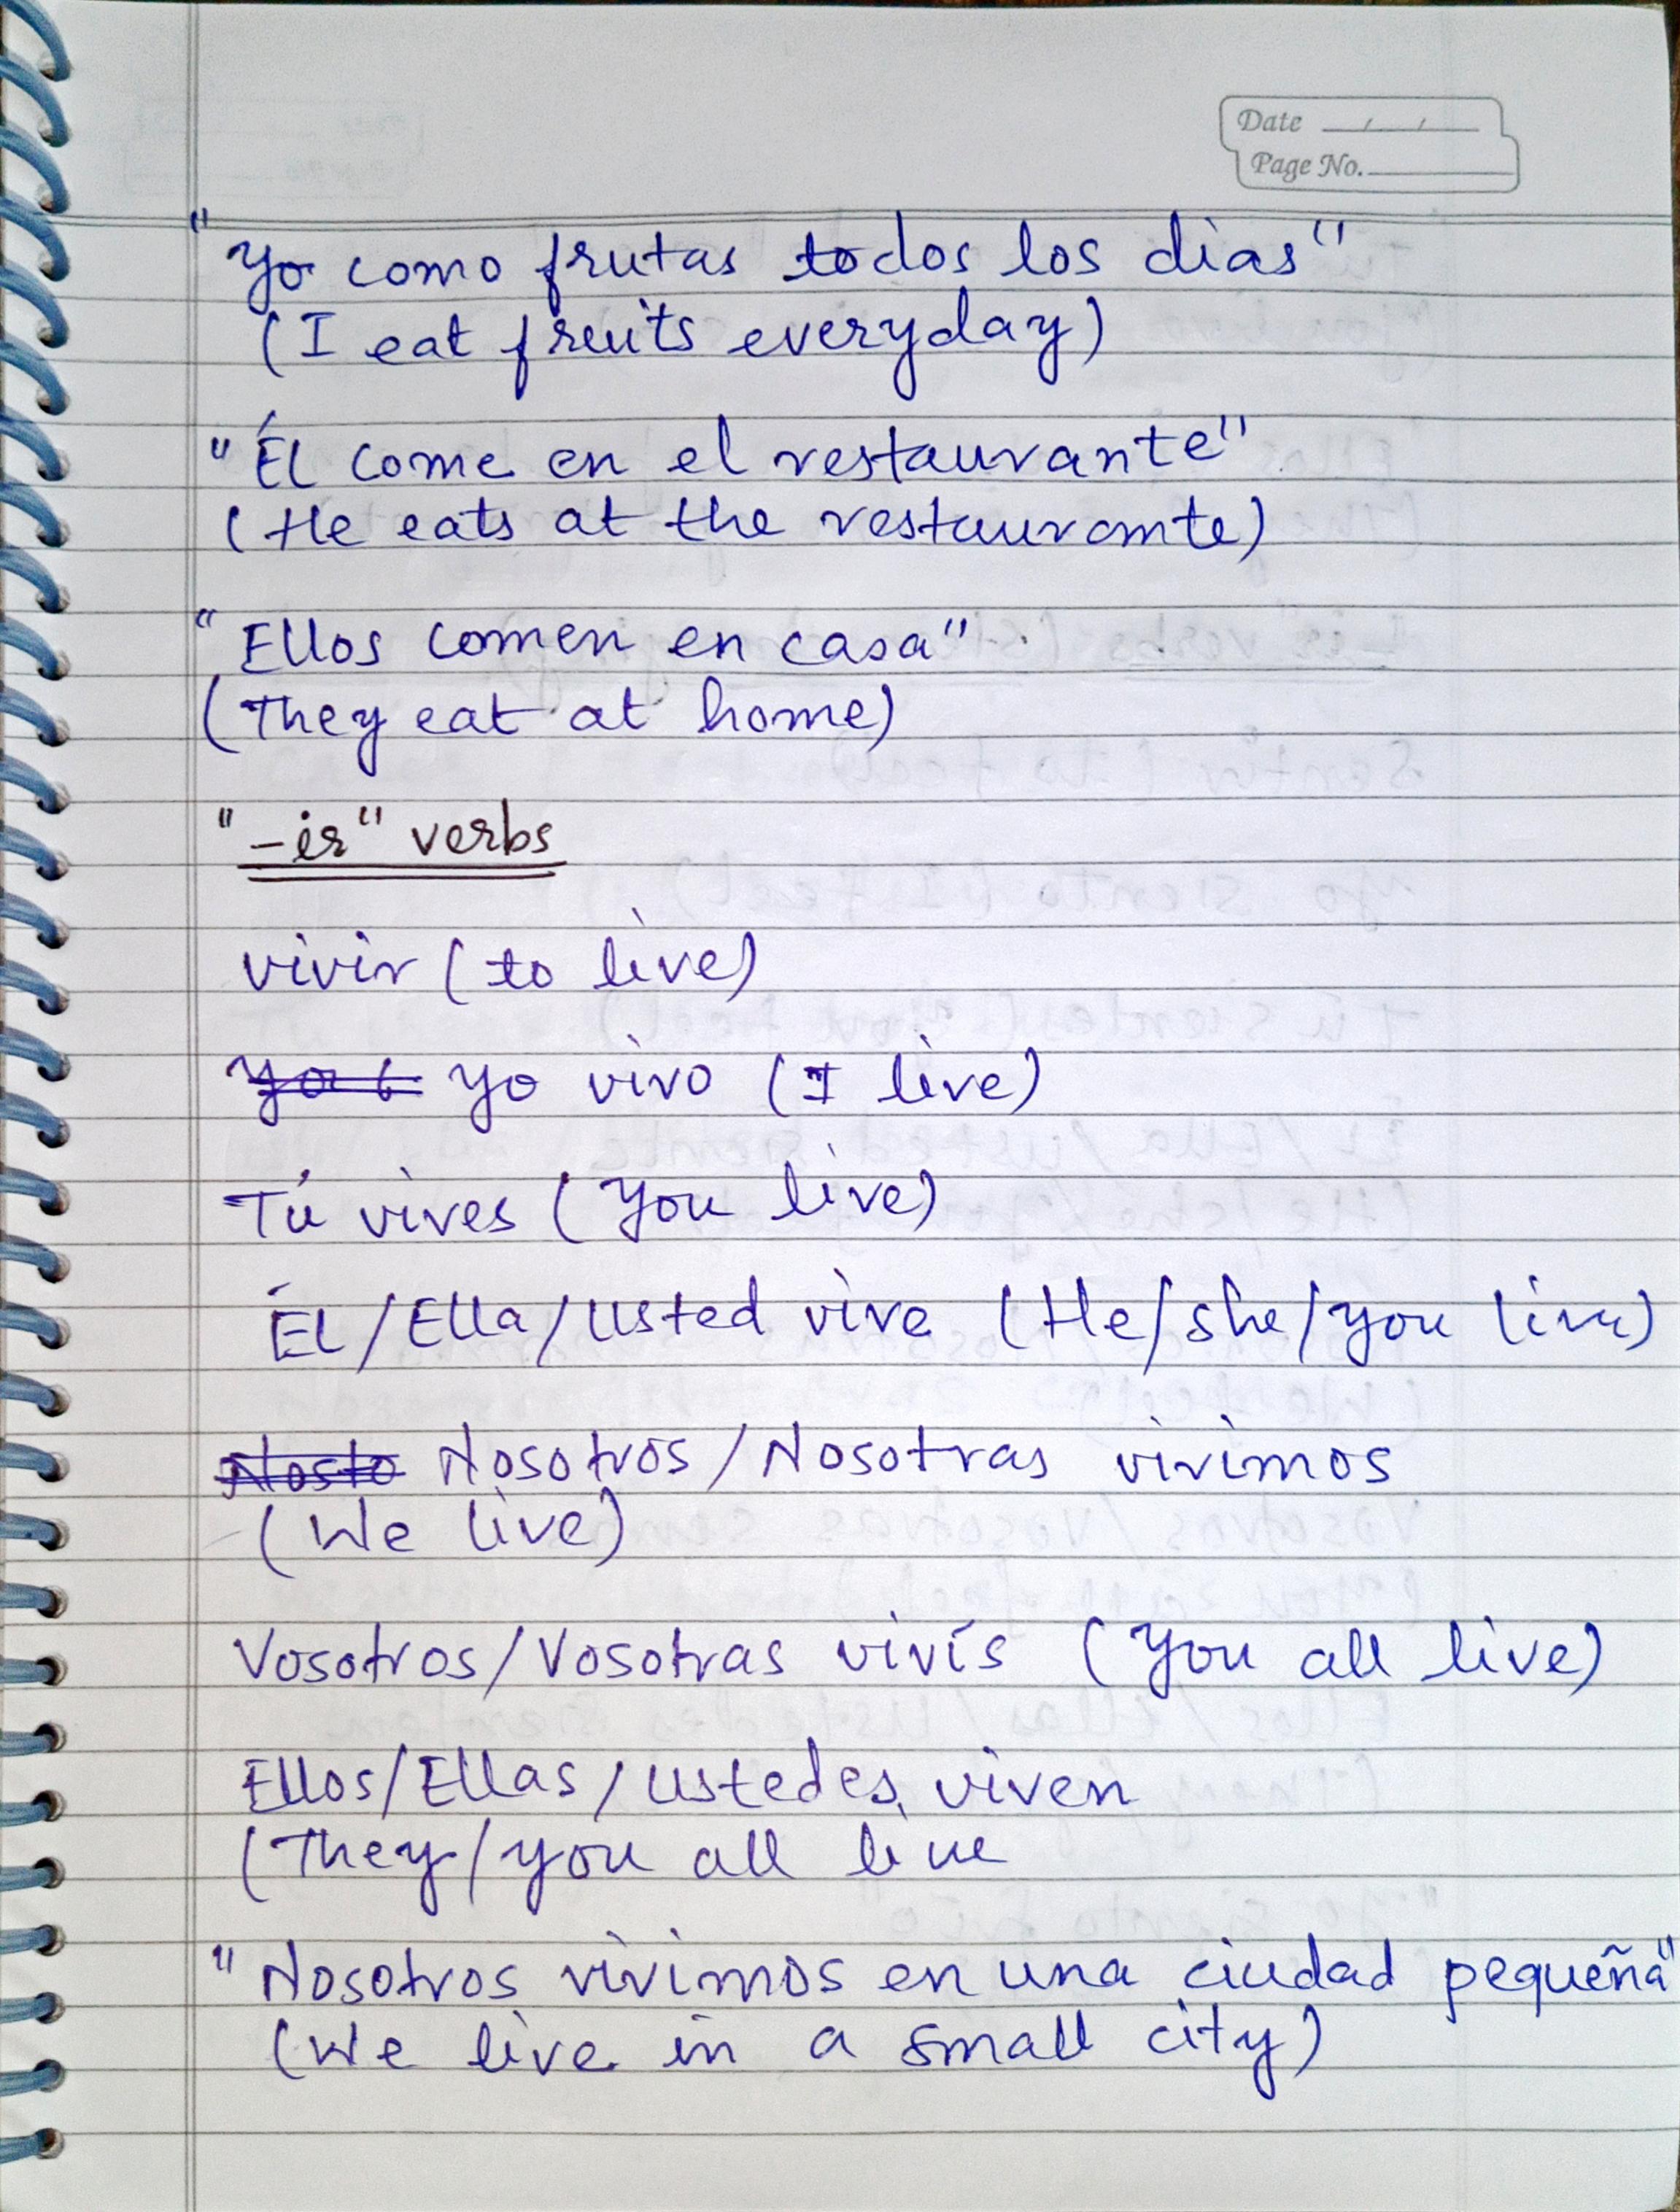 Date __/__/__
Page No.
"Yo como frutas todos los dias"
(I eat fruits everyday)
"Él come en el restaurante"
(He eats at the restaurante)
"Ellos comen en casa"
(They eat at home)
"-ir" verbs
vivir (to live)
Yo vivo (I live)
Tú vives (You live)
Él/Ella/Usted vive (He/she/you live)
Nosto Nosotros/Nosotras vivimos
(We live)
Vosotros/Vosotras vivís (You all live)
Ellos/Ellas/Ustedes viven
(They/you all live
"Nosotros vivimos en una ciudad pequeña"
(We live in a small city)